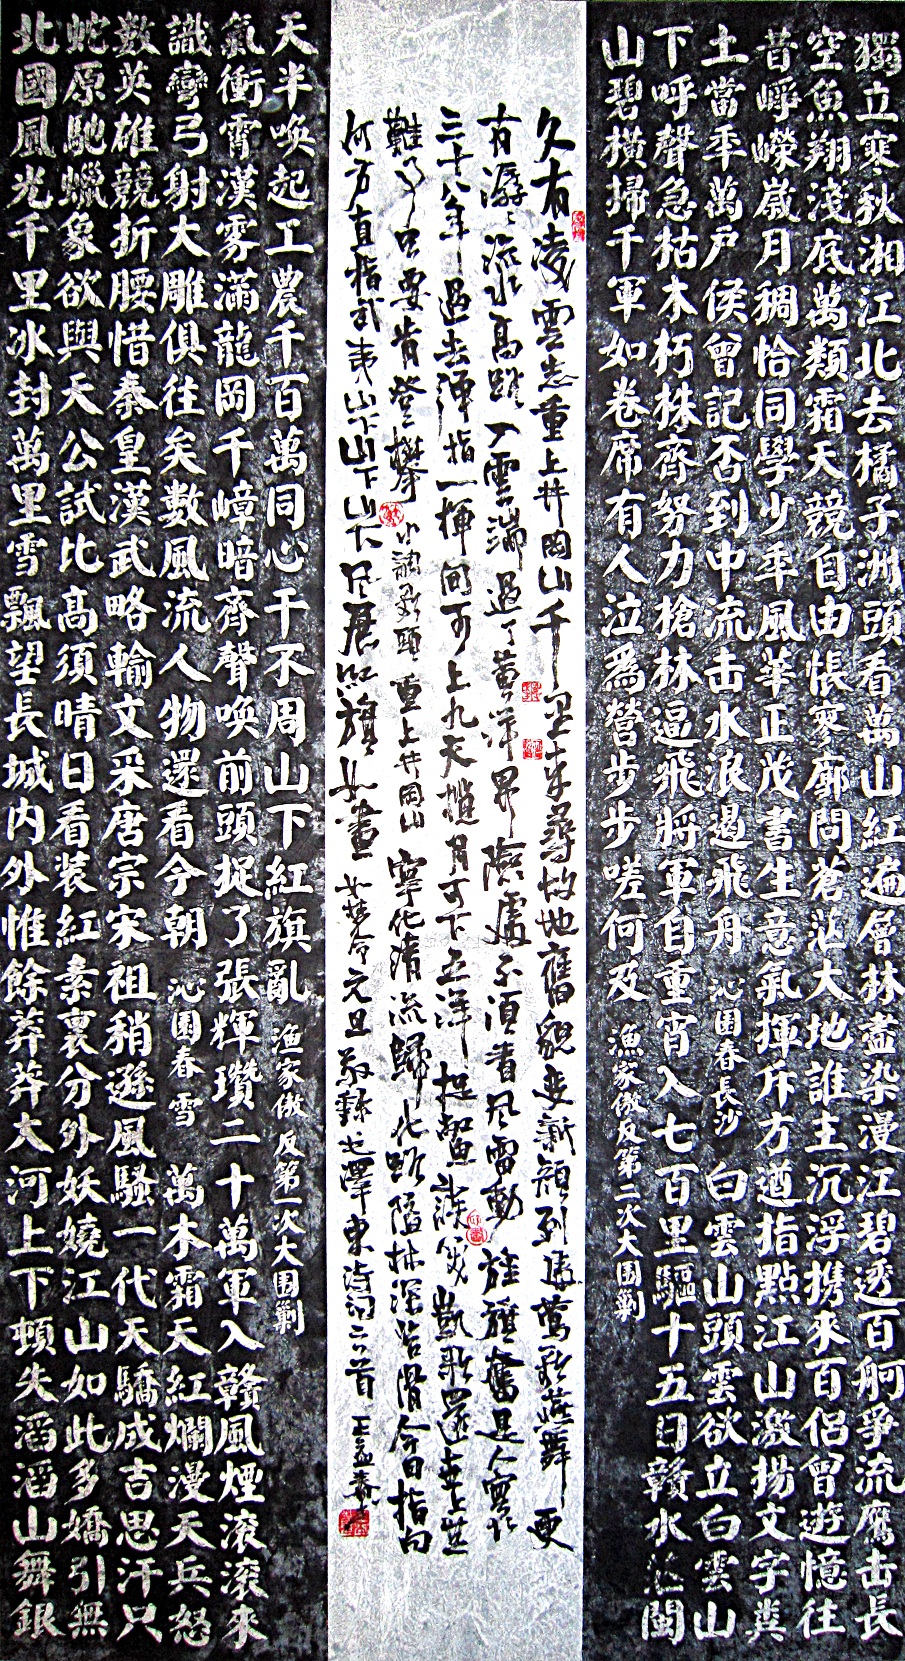 獨立寒秋湘江北去橘子洲頭看萬山紅遍層林盡染漫江碧透百舸爭流鷹击長
空魚翔淺底萬類霜天競自由悵寥廓問蒼茫大地誰主沉浮携來百侣曾遊憶往
昔崢嶸嵗月稠恰同學少年風華正茂書生意氣揮斥方遒指點江山激揚文字糞
土當年萬戶侯曾記否到中流击水浪遏飛舟 沁園春長沙 白雲山頭雲欲立白雲山
下呼聲急枯木朽株齊努力槍林逼飛將軍自重宵入七百里驅十五日贛水茫閩
山碧橫掃千軍如卷席有人泣爲營步步嗟何及 漁家傲反第二次大围剿
久有凌雲志重上井岡山千里来尋故地舊貌变新顔到處鶯歌燕舞更
有潺潺流水高路入雲端過了黄洋界險處不須看風雷動旌旗奮是人寰
三十八年過去彈指一揮間可上九天攬月可下五洋捉鱉談笑凱歌還世上無
難事只要肯登攀 水調歌頭 重上井岡山 寧化清流歸化路隘林深苔滑今日指向
何方直指武夷山下山下山下風展紅旗如畫 如夢令元旦 敬録毛澤東詩詞六首
北國風光千里冰封萬里雪飄望長城内外惟餘莽莽大河上下頓失滔滔山舞銀
蛇原馳蠟象欲與天公試比高須晴日看装紅素裹分外妖嬈江山如此多嬌引無
數英雄競折腰惜秦皇漢武略輸文采唐宗宋祖稍遜風騷一代天驕成吉思汗只
識彎弓射大雕俱往矣數風流人物還看今朝 沁園春雪 萬木霜天紅爛漫天兵怒
氣衝霄漢雾滿龍岡千嶂暗齊聲喚前頭捉了張輝瓚二十萬軍入贛風煙滚滚來
天半喚起工農千百萬同心干不周山下紅旗亂 漁家傲反第一次大围剿